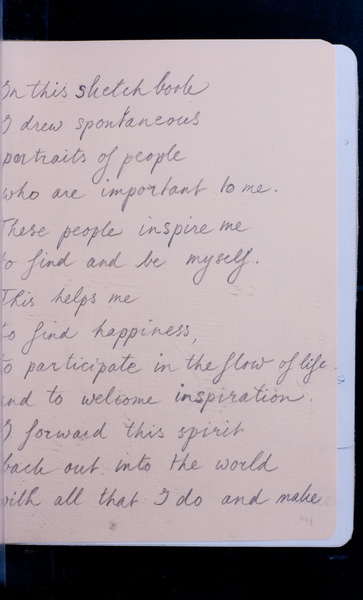 In this sketch book
I drew spontaneous
portraits of people
who are important to me.
These people inspire me
to find and be myself.
This helps me
to find happiness,
to participate in the flow of life
and to welcome inspiration.
I forward this spirit
back out into the world
with all that I do and make